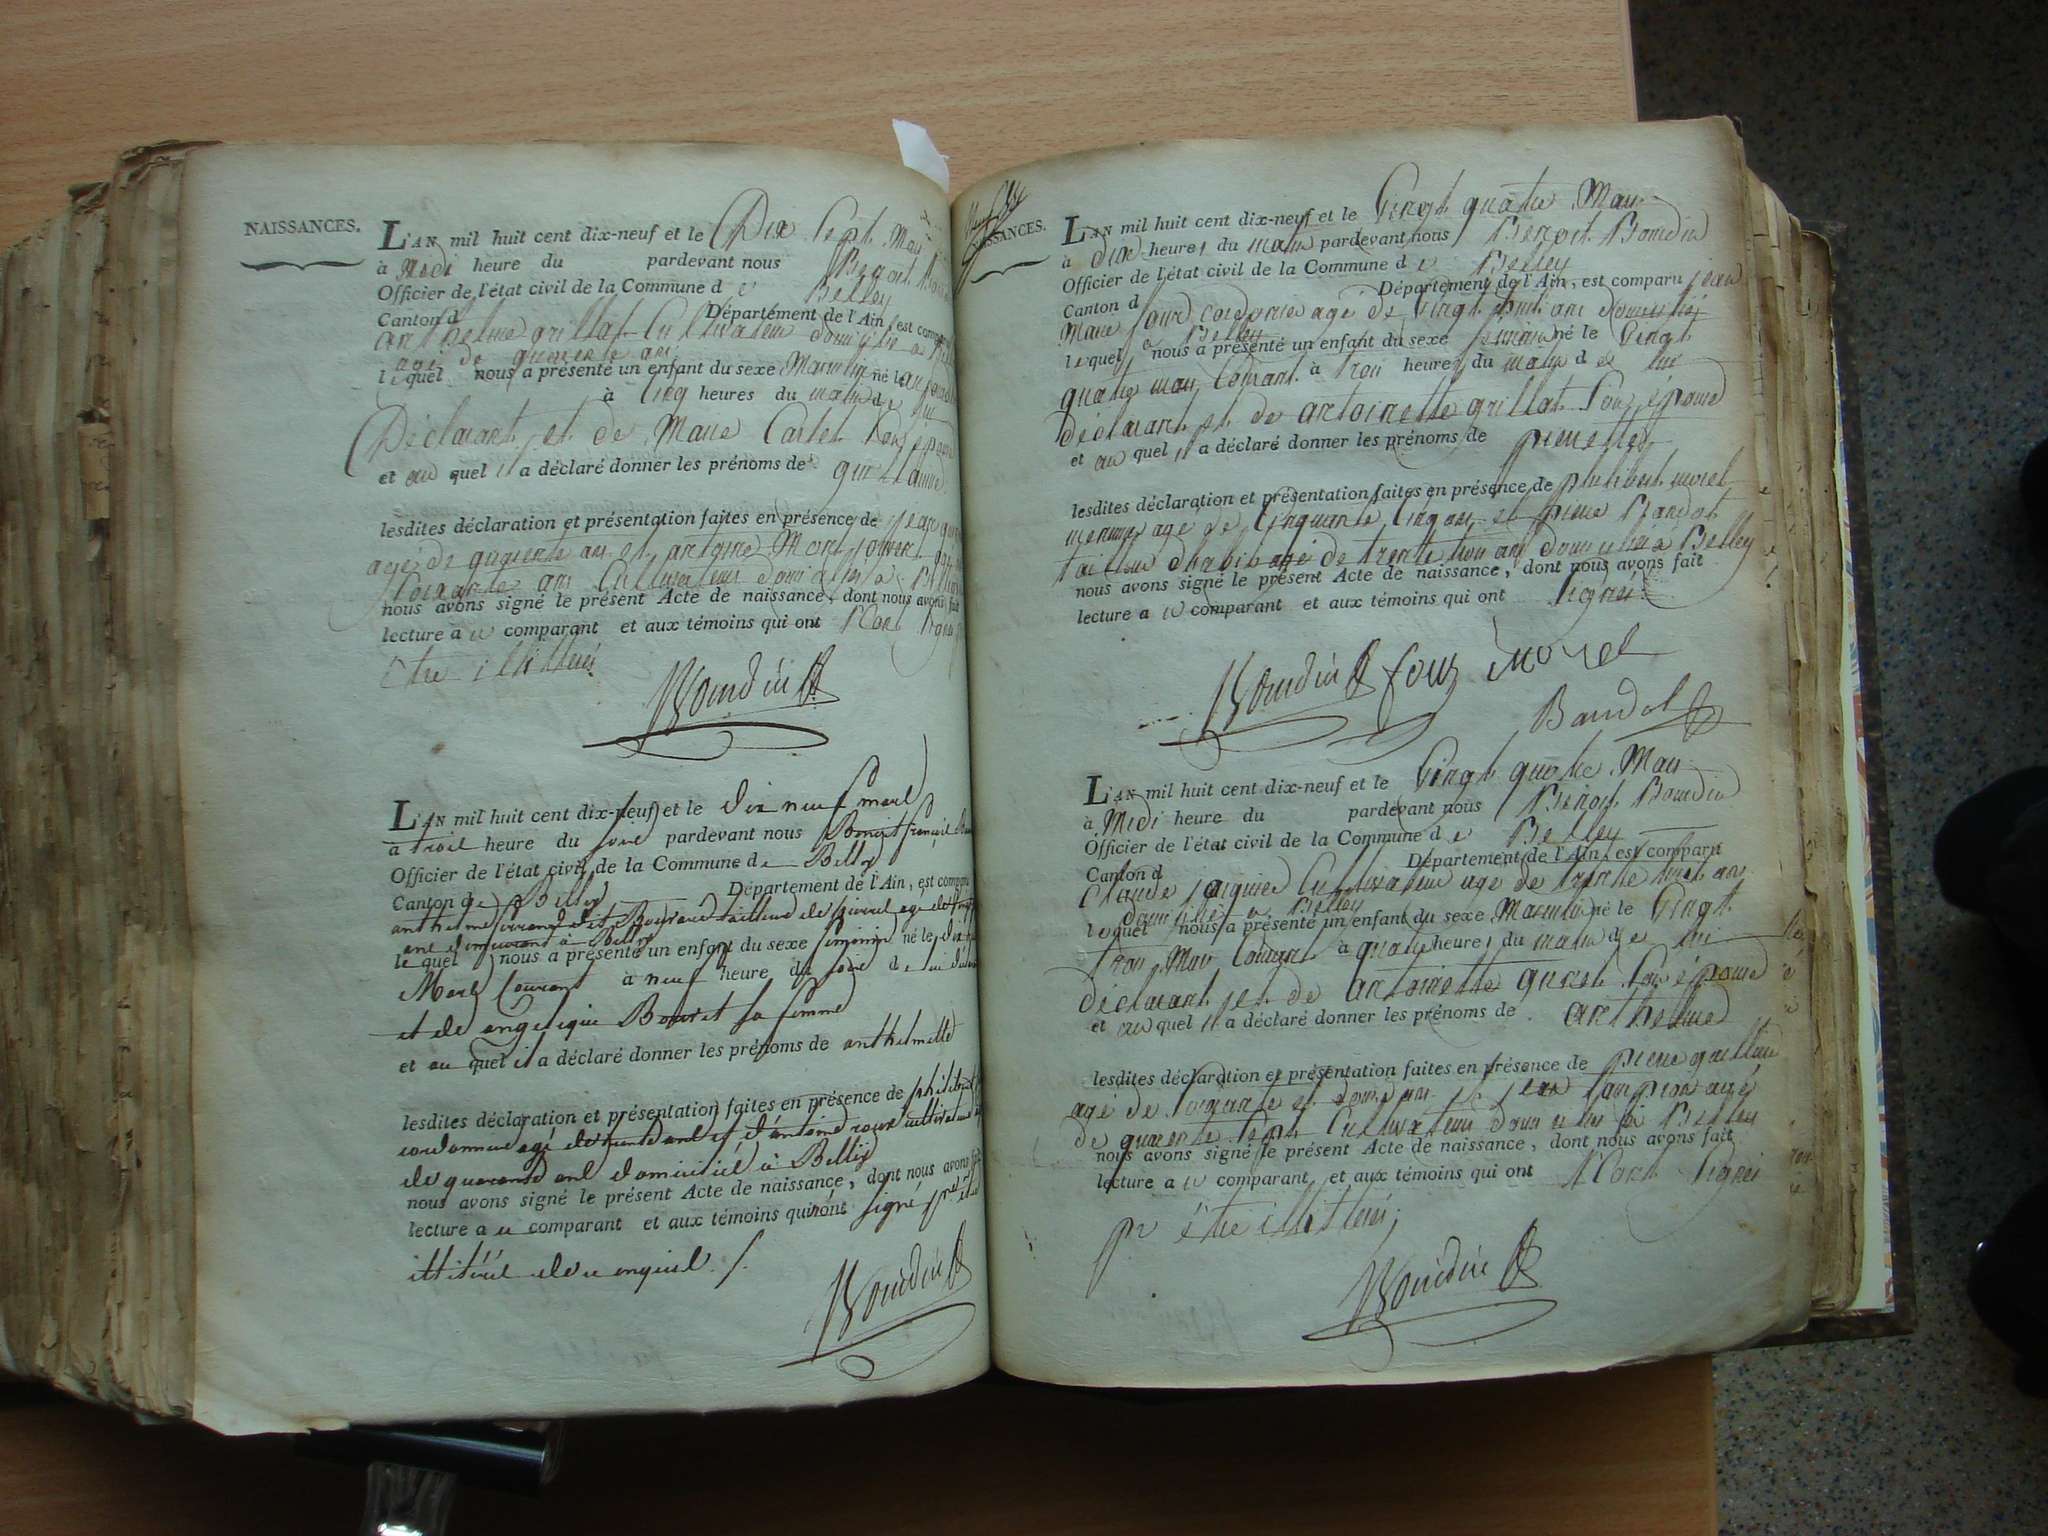 NAISSANCES.
L'AN mil huit cent dix-neuf et le Dix Sept Mars
à Midi heure du pardevant nous Benoit
Officier de l'état civil de la Commune de Belley
Canton d Département de l'Ain, est
anthelme grillat Cultivateur domicilié a
agé de quarente ans
lequel nous a présenté un enfant du sexe Masculin né le
à Cinq heures du matin de lui
Déclarant et de Marie Carlet Son épouse
et au quel il a déclaré donner les prénoms de guillaume
lesdites déclaration et présentation faites en présence de
agé de quarente ans et antoine
Soixante ans Cultivateurs domiciliés a
nous avons signé le présent Acte de naissance, dont nous avons fait
lecture a ce comparant et aux témoins qui ont
être illiterés
Bourdin
L'AN mil huit cent dix-neuf et le dix neuf mars
à trois heure du soir pardevant nous Benoit françois
Officier de l'état civil de la Commune de Belley
Canton de Belley Département de l'Ain, est
anthelme
lequel nous a présenté un enfant du sexe feminin né le
Mars Courant à neuf heure du soir de lui
et de angelique Bouvet sa femme
et au quel il a déclaré donner les prénoms de anthelmette
lesdites déclaration et présentation faites en présence de philibert
cordonnier agé de trente ans et d'antoine roux cultivateur
de quarante ans domiciliés à Belley
nous avons signé le présent Acte de naissance, dont nous avons
lecture a ce comparant et aux témoins qui ont signé
illitérés de ce enquis
Bourdin
NAISSANCES.
L'AN mil huit cent dix-neuf et le Vingt quatre Mars
à dix heures du matin pardevant nous Benoit Bourdin
Officier de l'état civil de la Commune de Belley
Canton d Département de l'Ain, est comparu jean
Marie cordonnier agé de Vingt huit ans domicilié
a Belley
lequel nous a présenté un enfant du sexe feminin né le Vingt
quatre mars Courant à trois heures du matin de lui
déclarant et de antoinette grillat Son épouse
et au quel il a déclaré donner les prénoms de pierrette
lesdites déclaration et présentation faites en présence de philibert morel
menuisier agé de Cinquante Cinq ans et pierre Baudot
tailleur d'habis agé de trente trois ans domiciliés a Belley
nous avons signé le présent Acte de naissance, dont nous avons fait
lecture a ce comparant et aux témoins qui ont Signés
Bourdin Morel
L'AN mil huit cent dix-neuf et le Vingt quatre Mars
à Midi heure du pardevant nous Benoit Bourdin
Officier de l'état civil de la Commune de Belley
Canton d Département de l'Ain, est comparu
Claude jacquier Cultivateur agé de trente huit ans
domicilié a Belley
lequel nous a présenté un enfant du sexe Masculin né le Vingt
trois Mars Courant à quatre heures du matin de lui
déclarant et de antoinette Son épouse
et au quel il a déclaré donner les prénoms de anthelme
lesdites déclaration et présentation faites en présence de pierre
agé de Soixante et douze ans et jean agé
de quarente Sept Cultivateurs domiciliés a Belley
nous avons signé le présent Acte de naissance, dont nous avons fait
lecture a ce comparant et aux témoins qui ont N'ont Signés
pr être illiterés
Bourdin